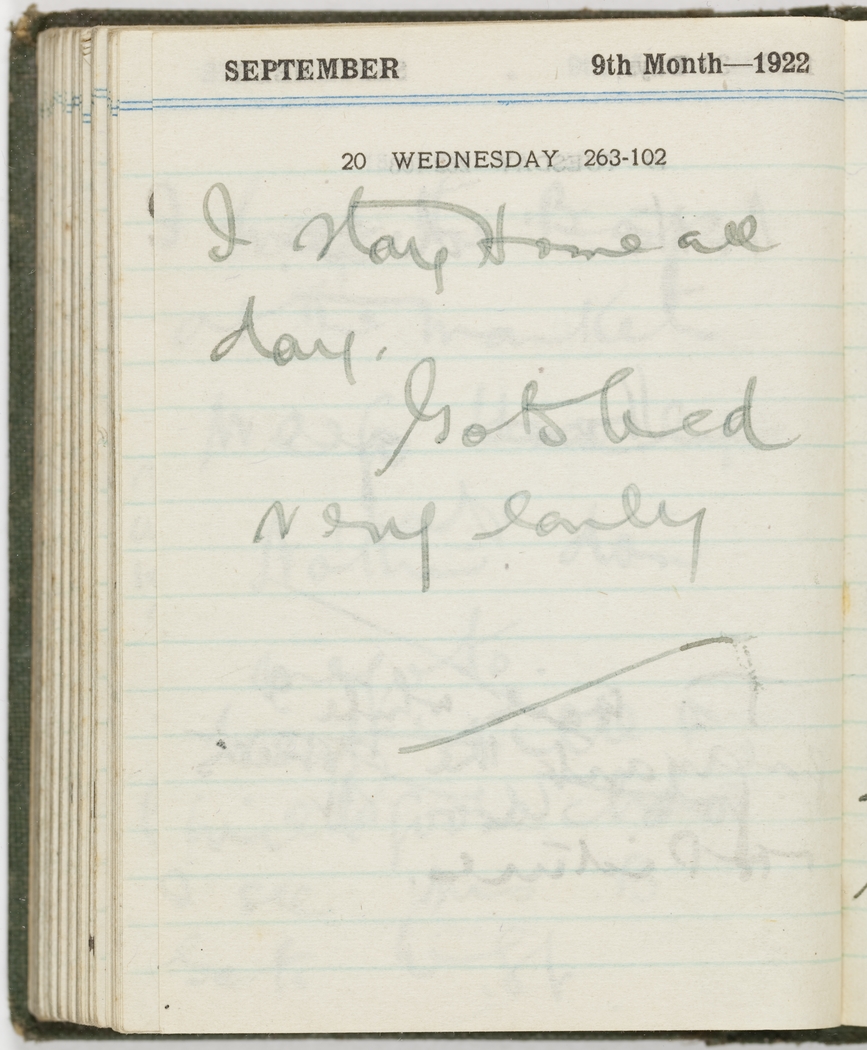 SEPTEMBER 9th Month—1922
20 WEDNESDAY 263-102
I stay Home all
day.
Go to bed
very early